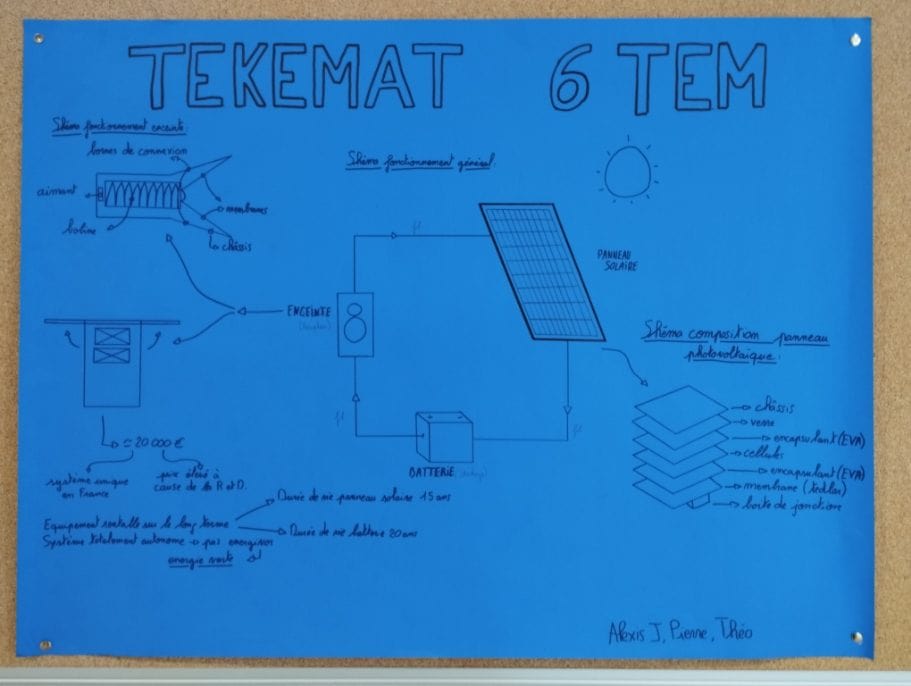 TEKEMAT 6 TEM
Shéma fonctionnement enceinte:
bornes de connexion
aimant
membranes
bobine
châssis
Shéma fonctionnement général:
fil
PANNEAU
SOLAIRE
ENCEINTE
fil
fil
BATTERIE
≃ 20 000 €
système unique
en France
prix élevé à
cause de la R et D.
Equipement rentable sur le long terme
Durée de vie panneau solaire 15 ans
Durée de vie batterie 20 ans
Système totalement autonome → pas energivore
energie verte
Shéma composition panneau
photovoltaique:
châssis
verre
encapsulant (EVA)
cellules
encapsulant (EVA)
membrane (tedlar)
boite de jonction
Alexis J, Pierre, Théo